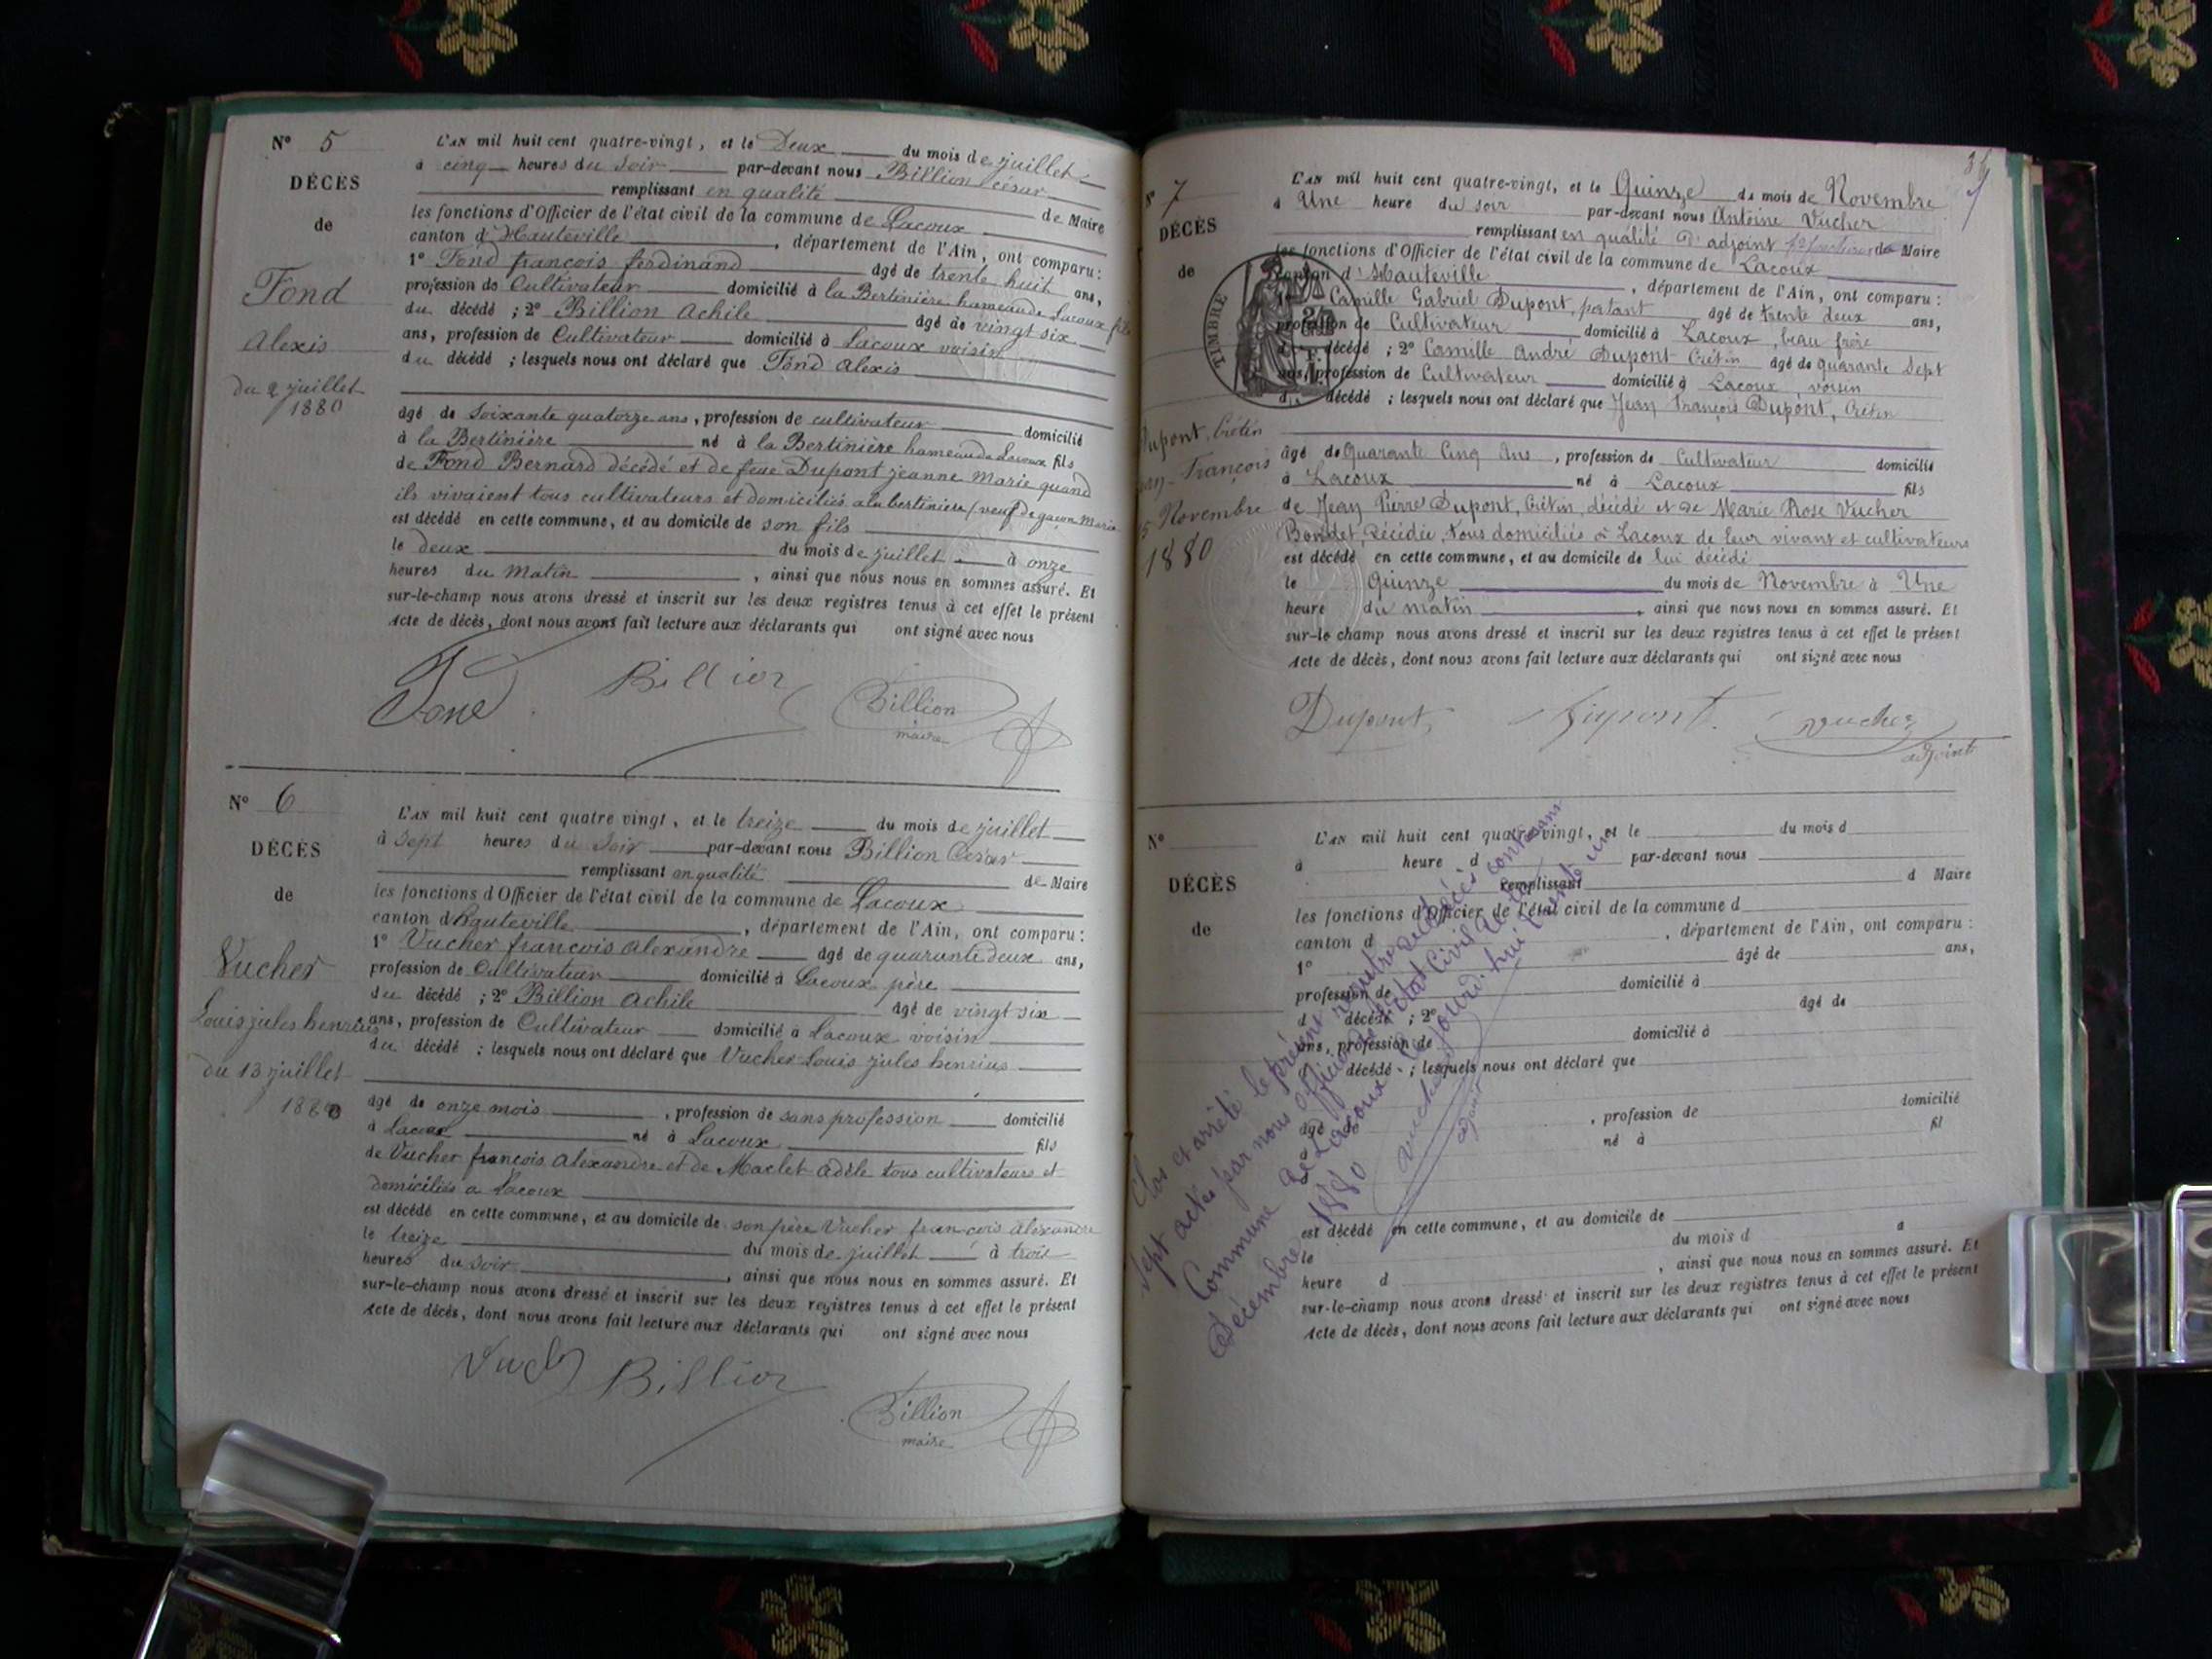 N° 5
DÉCÈS
de
Fond
Alexis
du 2 juillet
1880
L'AN mil huit cent quatre-vingt, et le Deux du mois de juillet
à cinq heures du Soir par-devant nous Billion César
remplissant en qualité de Maire
les fonctions d'Officier de l'état civil de la commune de Lacoux
canton d'Hauteville, département de l'Ain, ont comparu :
1° Fond françois ferdinand âgé de trente huit ans,
profession de Cultivateur domicilié à la Bertinière hameau de Lacoux fils
du décédé ; 2° Billion Achile âgé de vingt six
ans, profession de Cultivateur domicilié à Lacoux voisin
du décédé ; lesquels nous ont déclaré que Fond Alexis
âgé de Soixante quatorze ans, profession de cultivateur domicilié
à la Bertinière né à la Bertinière hameau de Lacoux fils
de Fond Bernard décédé et de feue Dupont jeanne Marie quand
ils vivaient tous cultivateurs et domiciliés a la bertinière (veuf de Marie
est décédé en cette commune, et au domicile de son fils
le deux du mois de juillet à onze
heures du Matin, ainsi que nous nous en sommes assuré. Et
sur-le-champ nous avons dressé et inscrit sur les deux registres tenus à cet effet le présent
Acte de décès, dont nous avons fait lecture aux déclarants qui ont signé avec nous
Fond Billion Billion
maire
N° 6
DÉCÈS
de
Vucher
Louis jules henrius
du 13 juillet
1880
L'AN mil huit cent quatre vingt, et le treize du mois de juillet
à Sept heures du Soir par-devant nous Billion César
remplissant en qualité de Maire
les fonctions d'Officier de l'état civil de la commune de Lacoux
canton d'hauteville, département de l'Ain, ont comparu :
1° Vucher françois Alexandre âgé de quarante deux ans,
profession de Cultivateur domicilié à Lacoux père
du décédé ; 2° Billion Achile âgé de vingt six
ans, profession de Cultivateur domicilié à Lacoux voisin
du décédé ; lesquels nous ont déclaré que Vucher Louis jules henrius
âgé de onze mois, profession de sans profession domicilié
à Lacoux né à Lacoux fils
de Vucher françois Alexandre et de Maclet Adèle tous cultivateurs et
domiciliés a Lacoux
est décédé en cette commune, et au domicile de son père Vucher françois Alexandre
le treize du mois de juillet à trois
heures du Soir, ainsi que nous nous en sommes assuré. Et
sur-le-champ nous avons dressé et inscrit sur les deux registres tenus à cet effet le présent
Acte de décès, dont nous avons fait lecture aux déclarants qui ont signé avec nous
Billion Billion
maire
N° 7
DÉCÈS
de
Dupont, Crétin
Jean-François
15 Novembre
1880
TIMBRE
L'AN mil huit cent quatre-vingt, et le Quinze du mois de Novembre
à Une heure du soir par-devant nous Antoine Vucher
remplissant en qualité d'adjoint de Maire
les fonctions d'Officier de l'état civil de la commune de Lacoux
canton d'Hauteville, département de l'Ain, ont comparu :
Camille Gabriel Dupont, portant âgé de trente deux ans,
profession de Cultivateur, domicilié à Lacoux, beau frère
décédé ; 2° Camille André Dupont Crétin âgé de quarante Sept
ans, profession de Cultivateur domicilié à Lacoux voisin
décédé ; lesquels nous ont déclaré que Jean François Dupont, Crétin
âgé de Quarante Cinq Ans, profession de Cultivateur domicilié
à Lacoux né à Lacoux fils
de Jean Pierre Dupont, Crétin, décédé et de Marie Rose Vucher
Bondet, décédée, tous domiciliés à Lacoux de leur vivant et cultivateurs
est décédé en cette commune, et au domicile de lui décédé
le Quinze du mois de Novembre à Une
heure du matin, ainsi que nous nous en sommes assuré. Et
sur-le champ nous avons dressé et inscrit sur les deux registres tenus à cet effet le présent
Acte de décès, dont nous avons fait lecture aux déclarants qui ont signé avec nous
Dupont Dupont Vucher
adjoint
N°
DÉCÈS
de
L'AN mil huit cent quatre-vingt, et le du mois d
à heure d par-devant nous
remplissant d Maire
les fonctions d'Officier de l'état civil de la commune d
canton d, département de l'Ain, ont comparu :
1° âgé de ans,
profession de domicilié à
d décédé ; 2° âgé de
ans, profession de domicilié à
décédé ; lesquels nous ont déclaré que
âgé de, profession de domicilié
à né à fil
de
est décédé en cette commune, et au domicile de
le du mois d à
heure d, ainsi que nous nous en sommes assuré. Et
sur-le-champ nous avons dressé et inscrit sur les deux registres tenus à cet effet le présent
Acte de décès, dont nous avons fait lecture aux déclarants qui ont signé avec nous
Clos et arrêté le présent registre de Décès contenant
sept actes par nous officier de l'état Civil de la
Commune de Lacoux ce jourd'hui trente un
Décembre 1880
Vucher
adjoint